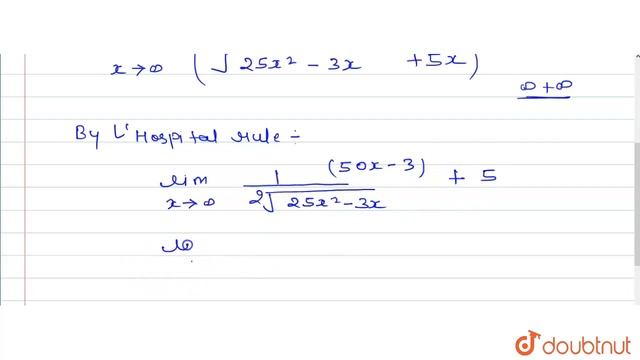 x→∞ (√25x² - 3x + 5x)
∞ + ∞
By L' Hospital rule :-
lim x→∞ 1/2√25x²-3x (50x - 3) + 5
doubtnut